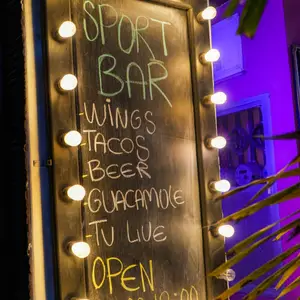 SPORT
BAR
-WINGS
-TACOS
-BEER
-GUACAMOLE
-TV LIVE
OPEN